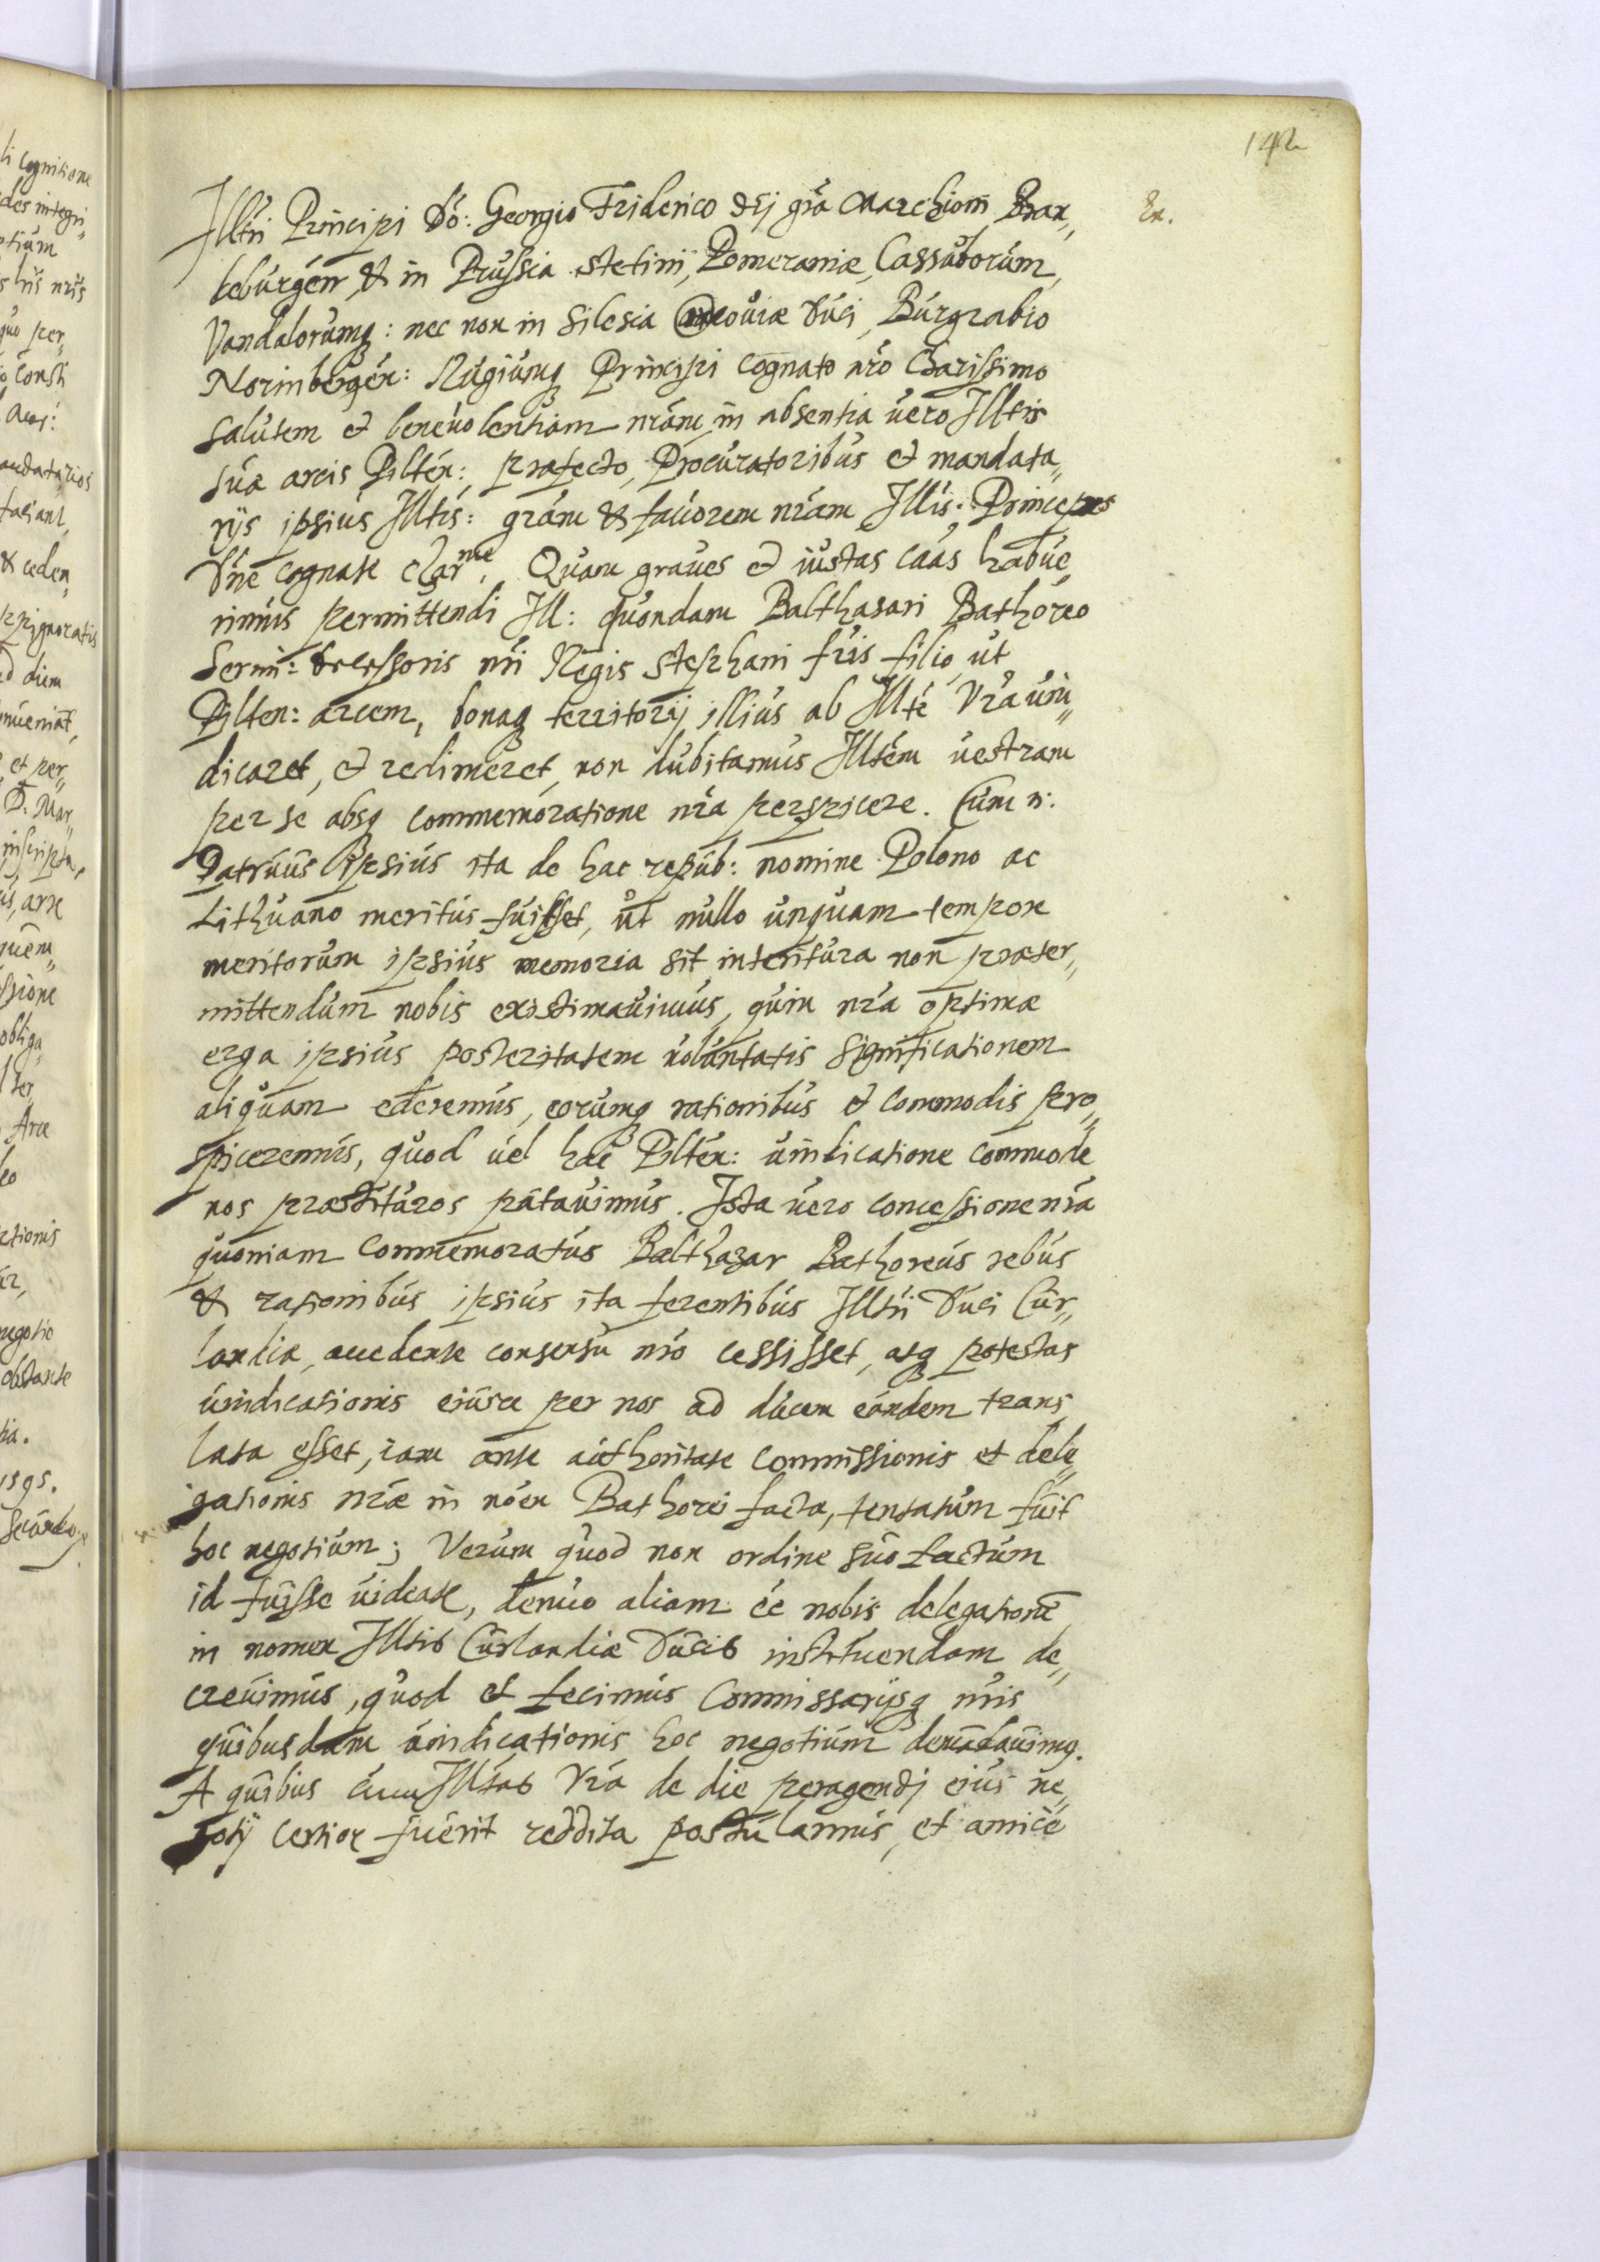 142
Illtri Principi Dō: Georgio Friderico Dei gra Marchioni Bran„
Ex.
deburgen & in Prussia Stetini, Pomeraniæ, Cassuborum,
Vandalorumq: nec non in Silesia Duci, Burgrabio
Norinbergen: Rugiumq Principi Cognato nro Charissimo
Salutem et benevolentiam nram in absentia vero Illtis
suæ arcis Pilten: præfecto, Procuratoribus et mandata„
rijs ipsius Illtis: gram & favorem nram Illis: Princeps
Dne cognate Charme. Quam graves et iustas caās habue
rimus permittendi Ill: quondam Balthasari Bathoreo
Sermi: decessoris nri Regis Stephani fris filio, ut
Pilten: arcem, bonaq territorij illius ab Illte Vra vin„
dicaret, et redimeret, non dubitamus Illtem vestram
per se absq commemoratione nra perspicere. Cum n:
Patruus ipsius ita de hac repub: nomine Polono ac
Lithuano meritus fuisset, ut nullo unquam tempore
meritorum ipsius memoria sit interitura non præter„
mittendum nobis existimavimus, quin nra optimæ
erga ipsius posteritatem voluntatis significationem
aliquam ederemus, eorumq rationibus et commodis pro„
spiceremus, quod vel hac Pilten: vindicatione commode
nos præstituros putavimus. Ista vero concessione nra
quoniam commemoratus Balthazar Bathoreus rebus
& rationibus ipsius ita ferentibus Illtri Duci Cur„
landiæ, accedente consensu nro cessisset, atq potestas
vindicationis eiusce per nos ad ducem eundem trans
lata esset, iam ante authoritate Commissionis et dele„
gationis nræ in noen Bathorei facta, tentatum fuit
hoc negotium; Verum quod non ordine suo factum
id fuisse videate, denuo aliam ee nobis delegatione
in nomen Illtis Curlandiæ Ducis instituendam de„
crevimus, quod et fecimus Commissarijsq nris
quibusdam vindicationis hoc negotium demādavimq.
A quibus cum Illtas Vra de die peragendj eius ne„
gotij certior fuerit reddita postulamus, et amice